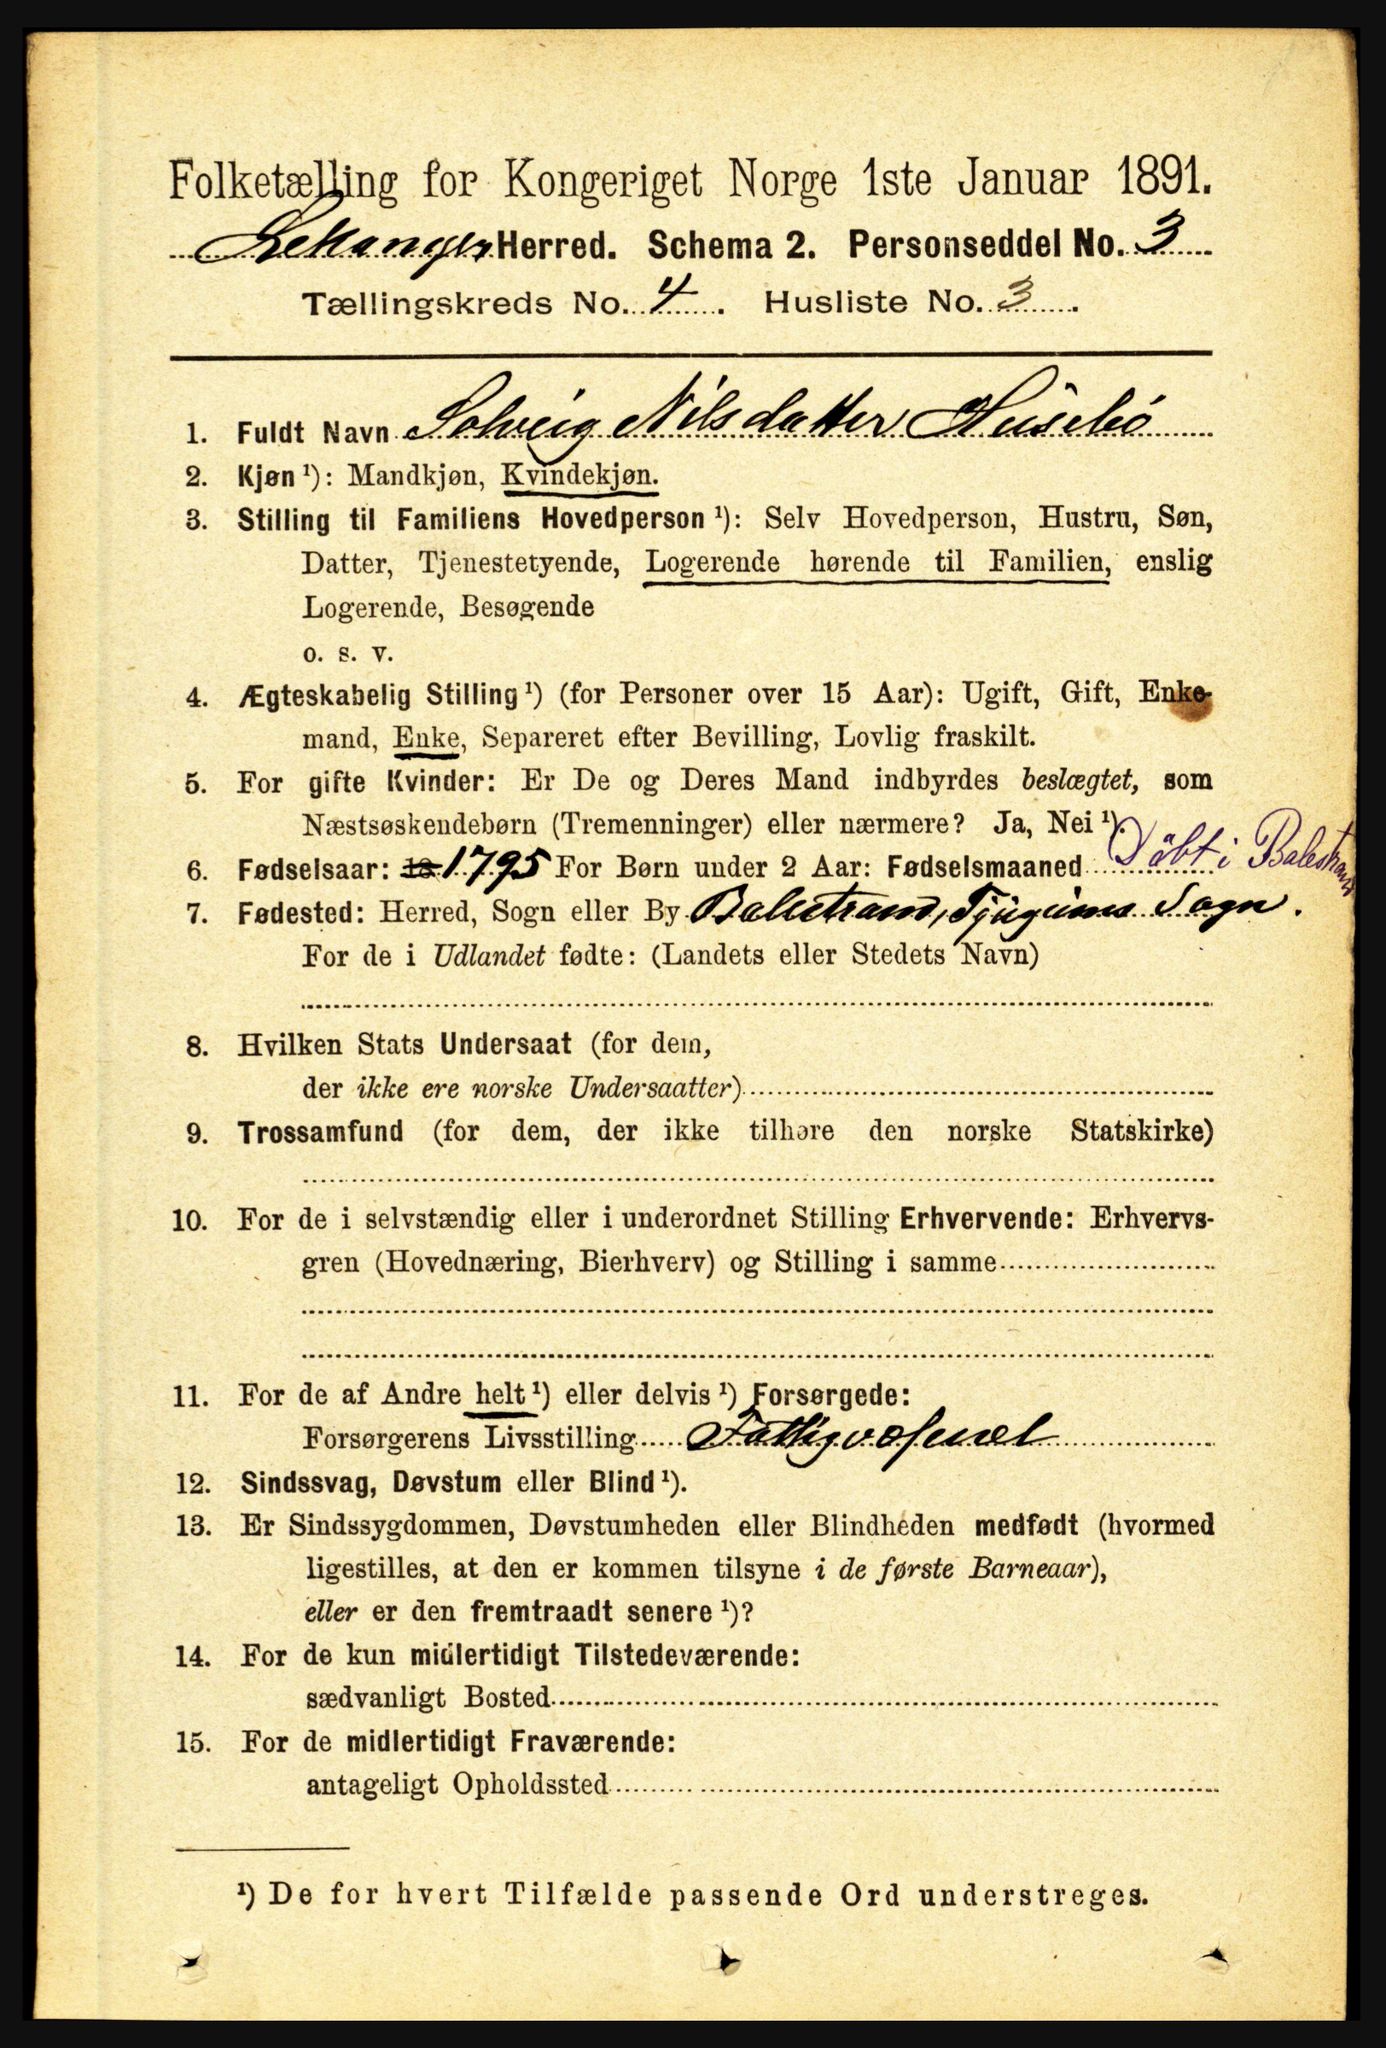 Folketælling for Kongeriget Norge 1ste Januar 1891.
Leikanger Herred. Schema 2. Personseddel No. 3
Tællingskreds No. 4. Husliste No. 3.
1. Fuldt Navn Solveig Nilsdatter Husebø
2. Kjøn ¹): Mandkjøn, Kvindekjøn.
3. Stilling til Familiens Hovedperson ¹): Selv Hovedperson, Hustru, Søn,
Datter, Tjenestetyende, Logerende hørende til Familien, enslig
Logerende, Besøgende
o. s. v.
4. Ægteskabelig Stilling ¹) (for Personer over 15 Aar): Ugift, Gift, Enke-
mand, Enke, Separeret efter Bevilling, Lovlig fraskilt.
5. For gifte Kvinder: Er De og Deres Mand indbyrdes beslægtet, som
Næstsøskendebørn (Tremenninger) eller nærmere? Ja, Nei ¹).
6. Fødselsaar: 18 1795 For Børn under 2 Aar: Fødselsmaaned Døbt i Balestrand
7. Fødested: Herred, Sogn eller By Balestrand, Tjugums Sogn.
For de i Udlandet fødte: (Landets eller Stedets Navn)
8. Hvilken Stats Undersaat (for dem,
der ikke ere norske Undersaatter)
9. Trossamfund (for dem, der ikke tilhøre den norske Statskirke)
10. For de i selvstændig eller i underordnet Stilling Erhvervende: Erhvervs-
gren (Hovednæring, Bierhverv) og Stilling i samme
11. For de af Andre helt ¹) eller delvis ¹) Forsørgede:
Forsørgerens Livsstilling Fattigvæsenet
12. Sindssvag, Døvstum eller Blind ¹).
13. Er Sindssygdommen, Døvstumheden eller Blindheden medfødt (hvormed
ligestilles, at den er kommen tilsyne i de første Barneaar),
eller er den fremtraadt senere ¹)?
14. For de kun midlertidigt Tilstedeværende:
sædvanligt Bosted
15. For de midlertidigt Fraværende:
antageligt Opholdssted
¹) De for hvert Tilfælde passende Ord understreges.